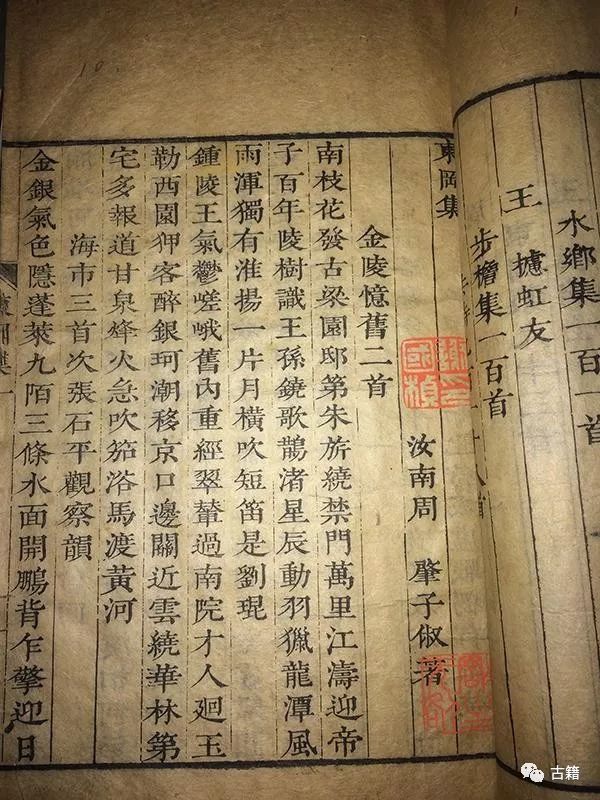 水鄉集一百一首
王 攄虹友
步檐集一百首
東岡集
汝南周 肇子俶著
金陵憶舊二首
南枝花發古梁園邸第朱旂繞禁門萬里江濤迎帝
子百年陵樹識王孫鐃歌鵲渚星辰動羽獵龍潭風
雨渾獨有淮揚一片月橫吹短笛是劉琨
鍾陵王氣鬱嵯峨舊內重經翠輦過南院才人廻玉
勒西園狎客醉銀珂潮移京口邊關近雲繞華林第
宅多報道甘泉烽火急吹笳浴馬渡黃河
海市三首次張石平觀察韻
金銀氣色隱蓬萊九陌三條水面開鵬背乍擎迎日
古籍